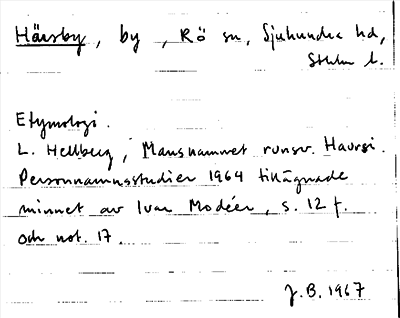 Härsby, by, Rö sn, Sjuhundra hd,
Sthlm l.
Etymologi.
L. Hellberg, Mansnamnet runsv. Haursi.
Personnamnsstudier 1964 tillägnade
minnet av Ivar Modéer, s. 12 f.
och not. 17.
J.B. 1967